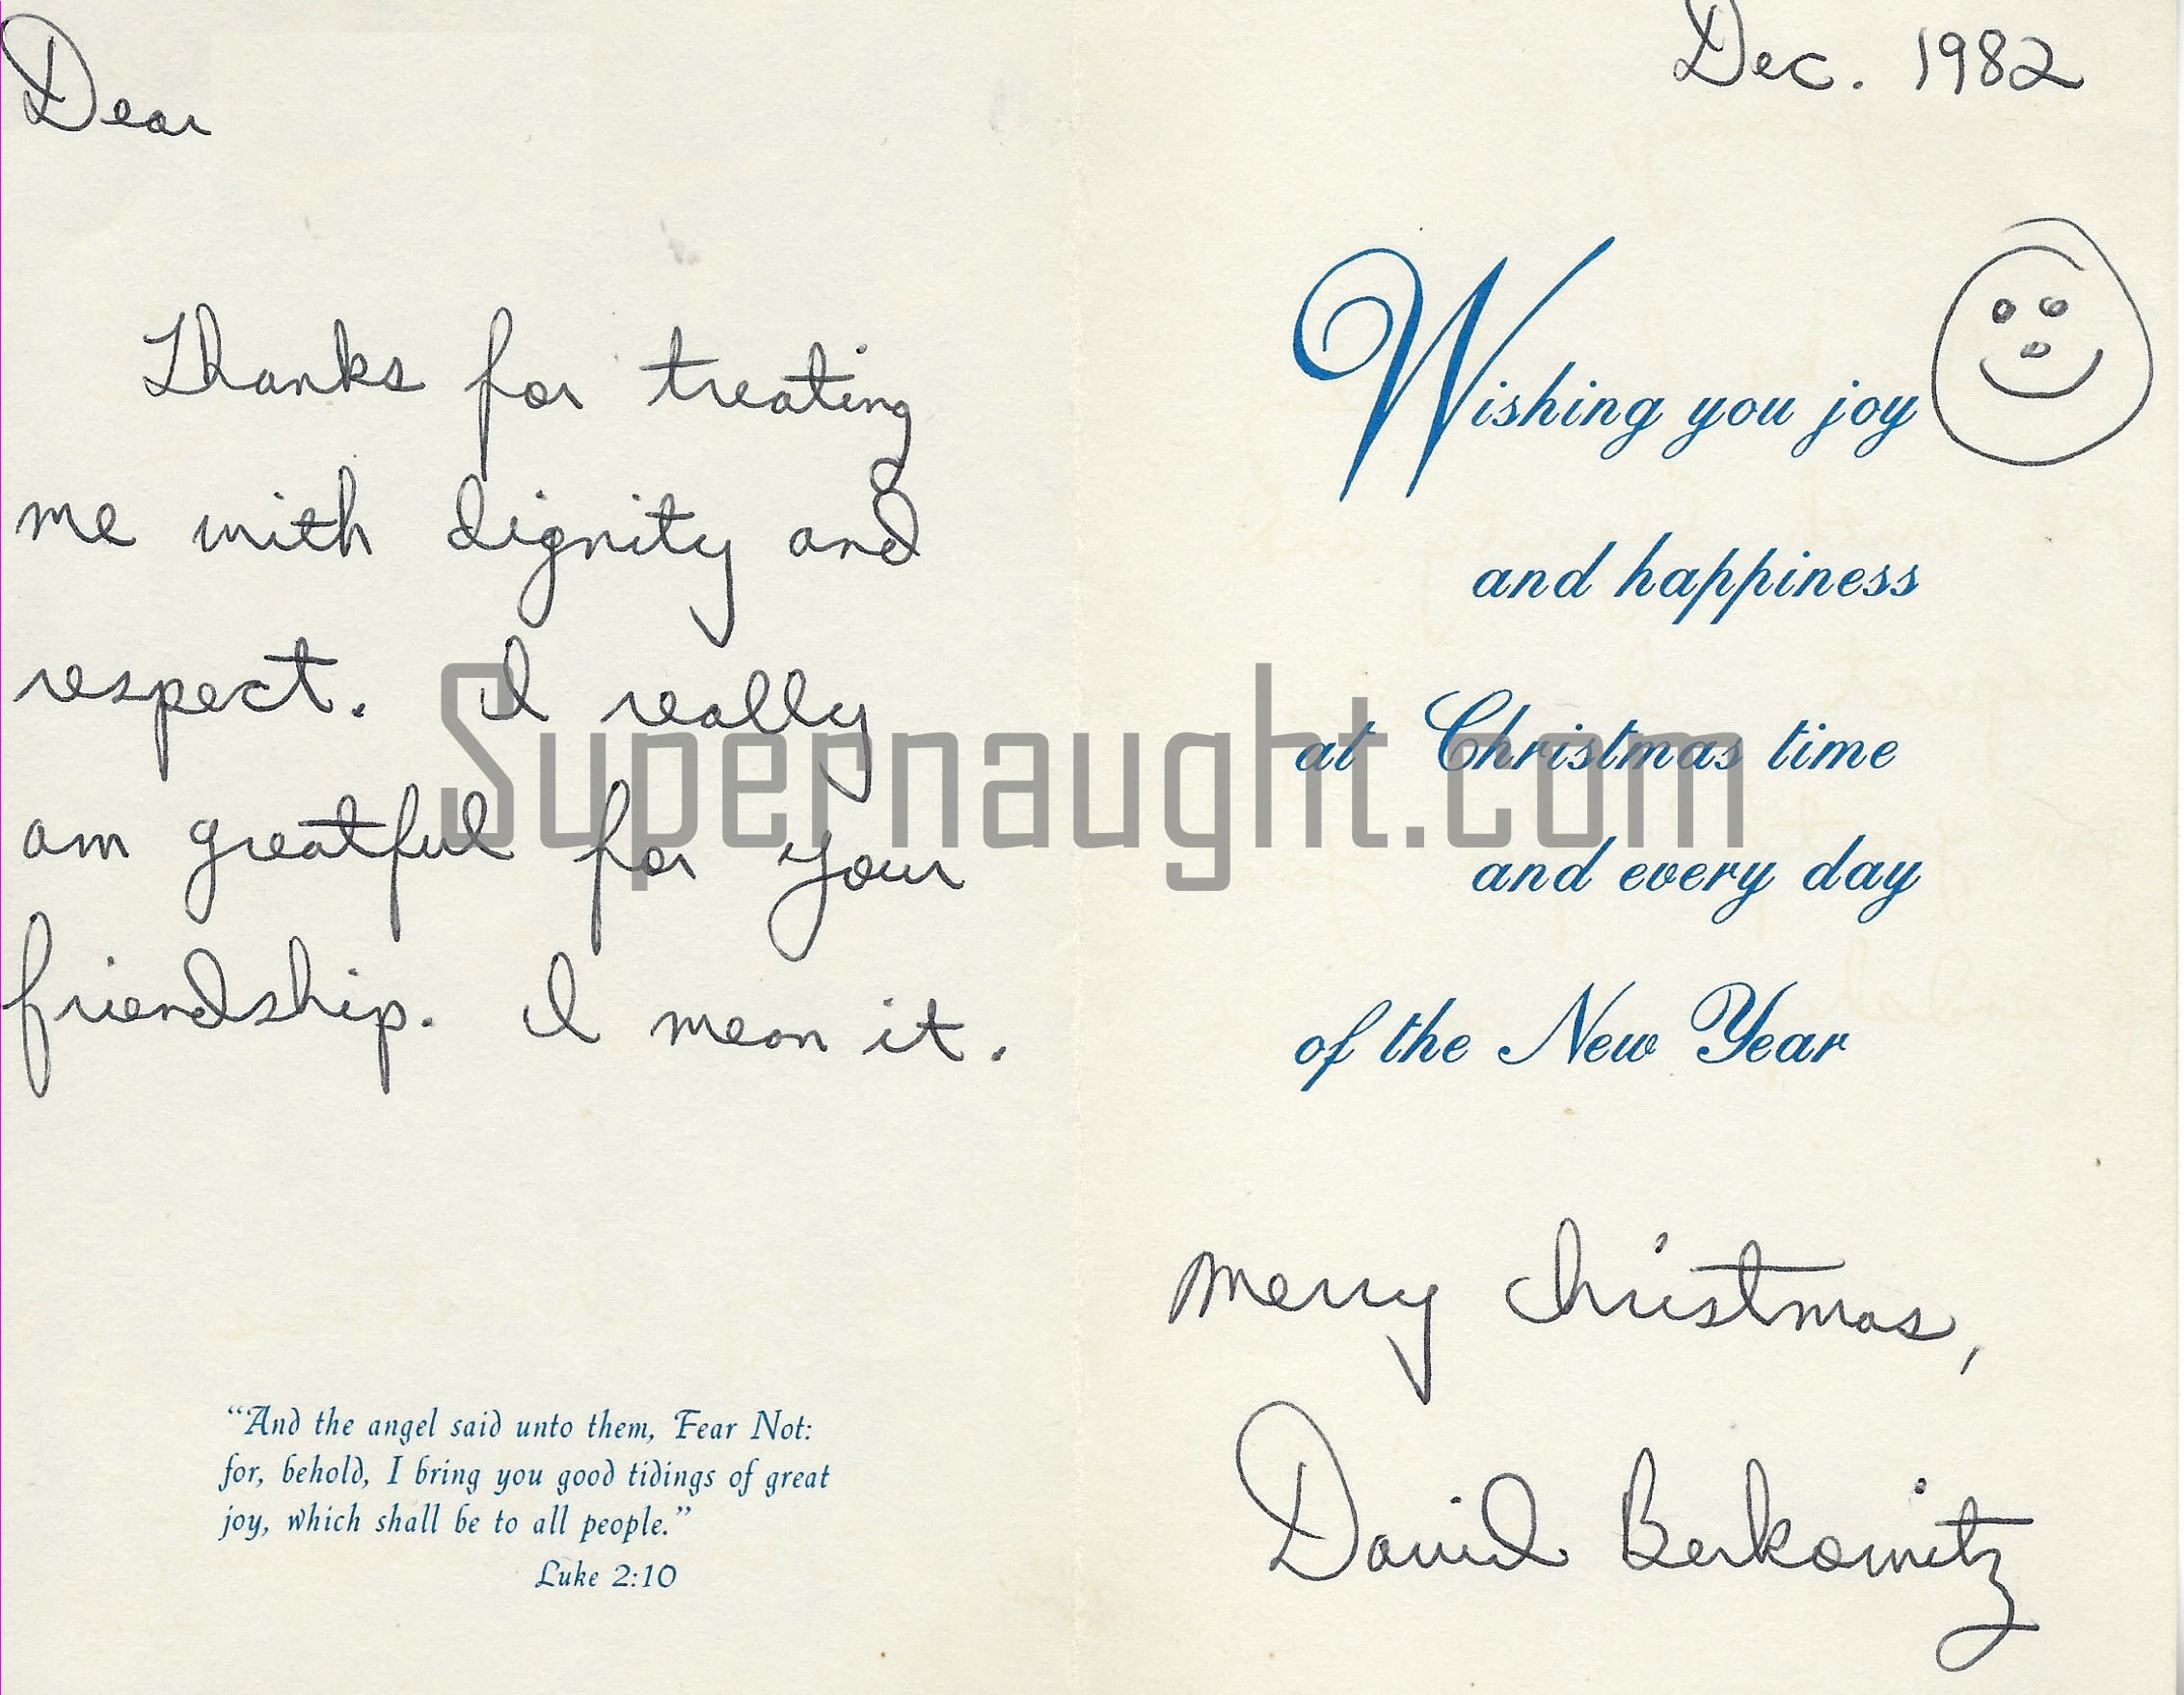 Dear
Thanks for treating
me with dignity and
respect. I really
am greatful for your
friendship. I mean it.
"And the angel said unto them, Fear Not:
for, behold, I bring you good tidings of great
joy, which shall be to all people."
Luke 2:10
Dec. 1982
Wishing you joy
and happiness
at Christmas time
and every day
of the New Year
Merry Christmas,
David Berkowitz
Supernaught.com